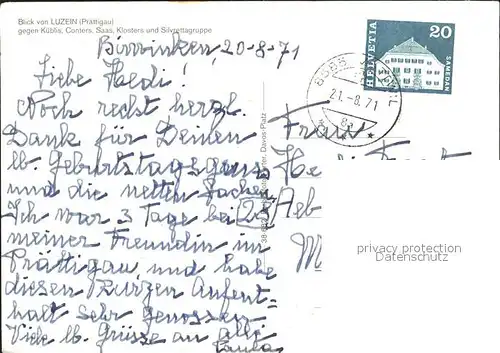 Blick von LUZEIN (Prättigau)
gegen Küblis, Conters, Saas, Klosters und Silvrettagruppe
20-8-71
Liebe Hedi!
Noch recht herzl.
Dank für Deinen
lb. Geburtstagsgruss
und die netten Sachen.
Ich war 3 Tage bei
meiner Freundin im
Prättigau, und habe
diesen kurzen Aufent=
halt sehr genossen
Viele lb. Grüsse an alle
HELVETIA
20
SAMEDAN
21.-8.71
Frau
privacy protection
Datenschutz
Davos-Platz